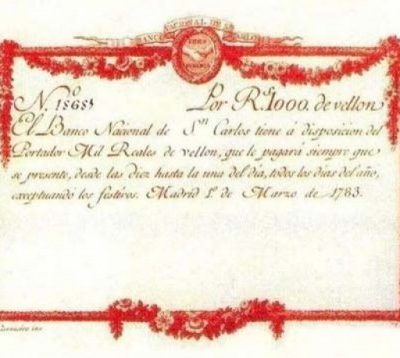 BANCO NACIONAL DE Sn CARLOS
No 18681 Por Rs. 1000. de vellon
El Banco Nacional de Sn Carlos tiene á disposicion del
Portador Mil Reales de vellon, que le pagará siempre que
se presente, desde las diez hasta la una del dia, todos los dias del año,
exceptuando los festivos. Madrid 1o de Marzo de 1783.